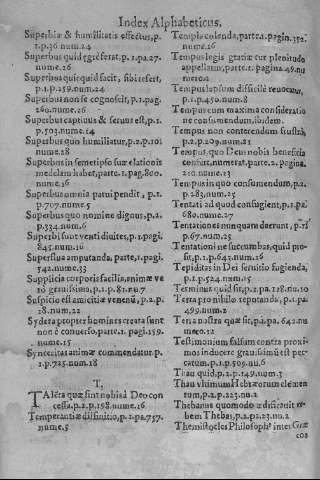 Index Alphabeticus.
Superbiæ & humilitatis effectus, p.
1. p. 36 num. 24
Superbus quid egréferat. p. 1. pa. 27.
nume. 26
Superbus quic quid facit, sibi refert,
p. 1. p. 259. num. 24
Superbus non se cognoscit, p. 1. pag.
260. nume. 26
Superbus captiuus & seruus est, p. 1.
p. 503. nume. 14
Superbus quo humiliatur, p. 2. p. 101
nume. 28
Superbus in semetipso suæ elationis
medelam habet, parte. 1. pag. 800.
nume. 16
Superbus omnia patui pendit, p. 1.
p. 707. nume. 5
Superbus quo nomine dignus, p. 2.
p. 334. num. 6
Superbi sunt venti diuites, p. 1. pagi.
845. num. 16
Superflua amputanda, parte. 1. pagi.
542. nume. 33
Supplicia corporis facilia, animæ ve
rò grauissima, p. 1. p. 81. nu. 7
Suspicio est amicitiæ venenū, p. 2. p.
18. num. 22
Sydera propter homines creata sunt
non è conuerso, parte. 1. pagi. 159.
nume. 15
Synceritas animæ commendatur. p.
1. p. 725. num. 18
T,
TAlẽta quæ sint nobis à Deo con
cessa. p. 2. p. 198. nume. 26
Temperantiæ diffinitio, p. 2. pa. 757.
nume. 5
Templa colenda, parte. 1. pagin. 352.
nume. 26
Tempus legis gratiæ cur plenitudo
appellatur, parte. 1. pagina. 49. nu
mero. 2
Tempus lapsum difficilè reuocatur,
p. 1. p. 450. num. 8
Tempus cum maxima consideratio
ne consumendum, ibidem.
Tempus non conterendum frustrà,
p. 2. p. 209. num. 21
Tempus quo Deus nobis beneficia
confert, numerat, parte. 2. pagina.
210. nume. 23
Tempus in quo consumendum, p. 2.
p. 283. num. 25
Tentati ad quod confugient, p. 1. pa.
680. nume. 27
Tentationes nunquam deerunt, p.
p. 67. num. 25
Tentationi ne succumbas, quid pro-
sit, p. 1. p. 645. num. 16
Tepiditas in Dei seruitio fugienda,
p. 1. p. 524. num. 15
Terminus quid sit, p. 2. p. 128. nu. 10
Terra pro nihilo reputanda, p. 1. pa.
499. num. 2
Terra nostra quæ sit, p. 1. pa. 642. nu
mero. 12
Testimonium falsum contra proxi-
mos inducere grauissimū est pec-
catum. p. 1. p. 509. nu. 6
Thau quid, p. 2. p. 149. num. 3
Thau vltimum Hebræorum elemen
tum, p. 2. p. 123. nu. 2
Thebanus quomodo ædificauit
bem Thebas, p. 2. pa. 23. nu. 2
Themistocles Philosoph' inter Græ
cos